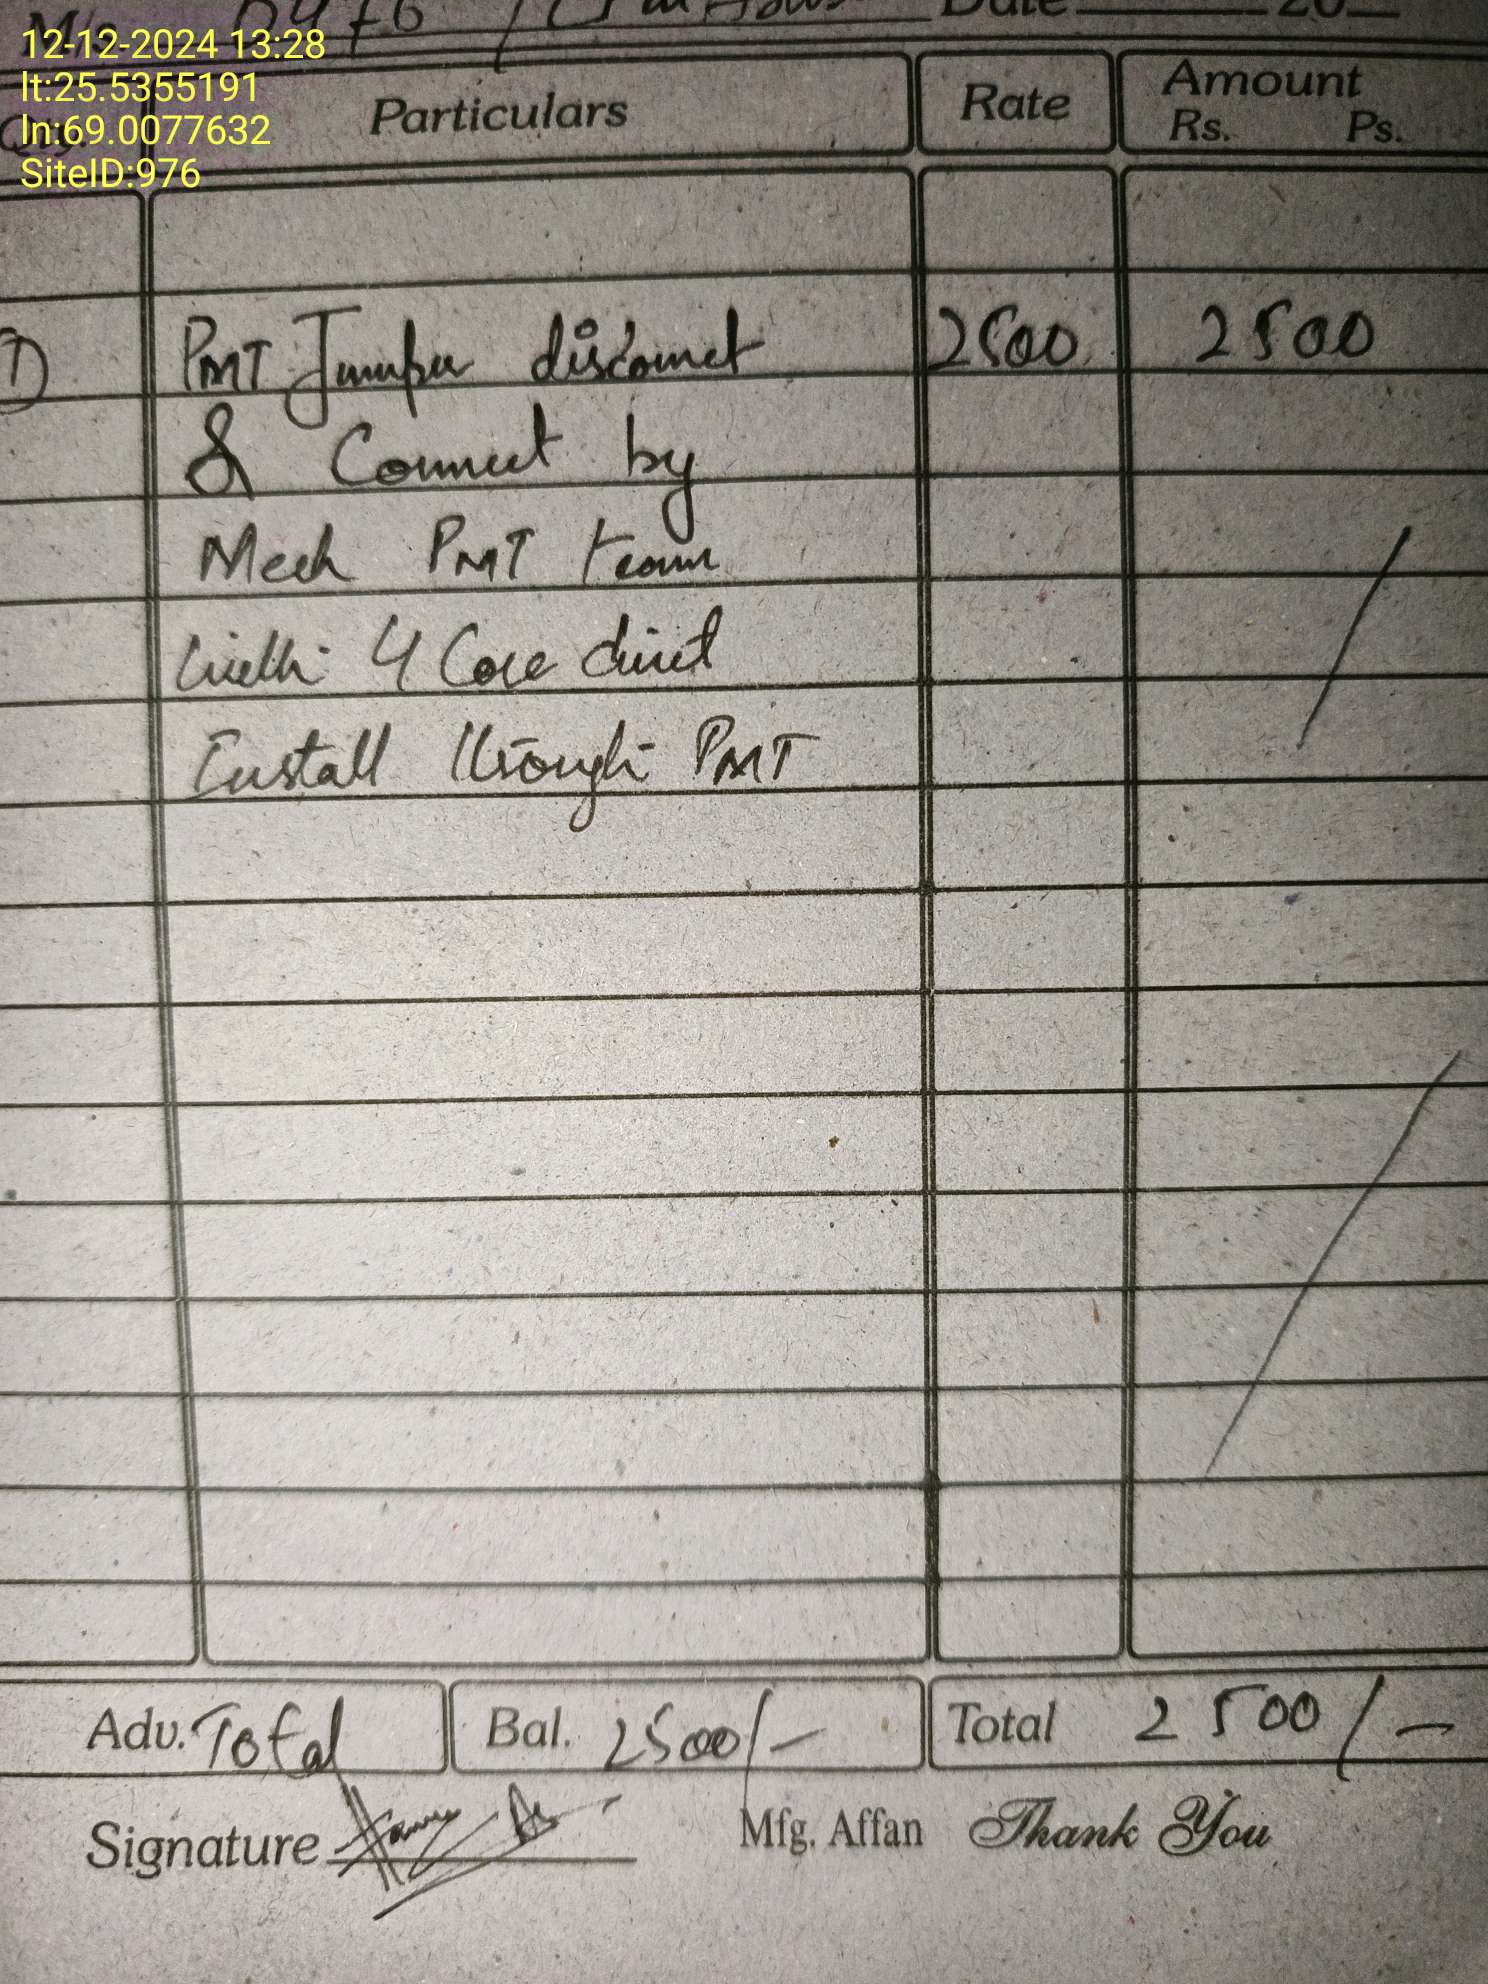 12-12-2024 13:28
lt:25.5355191
ln:69.0077632
SiteID:976
M/s Date 20
Qty. Particulars Rate Amount
Rs. Ps.
1) PMT Jumper disconnect 2500 2500
& Connect by
Mech PMT team
with 4 Core direct
Install through PMT
Adv. Total Bal. 2500/- Total 2500/-
Signature Mfg. Affan Thank You